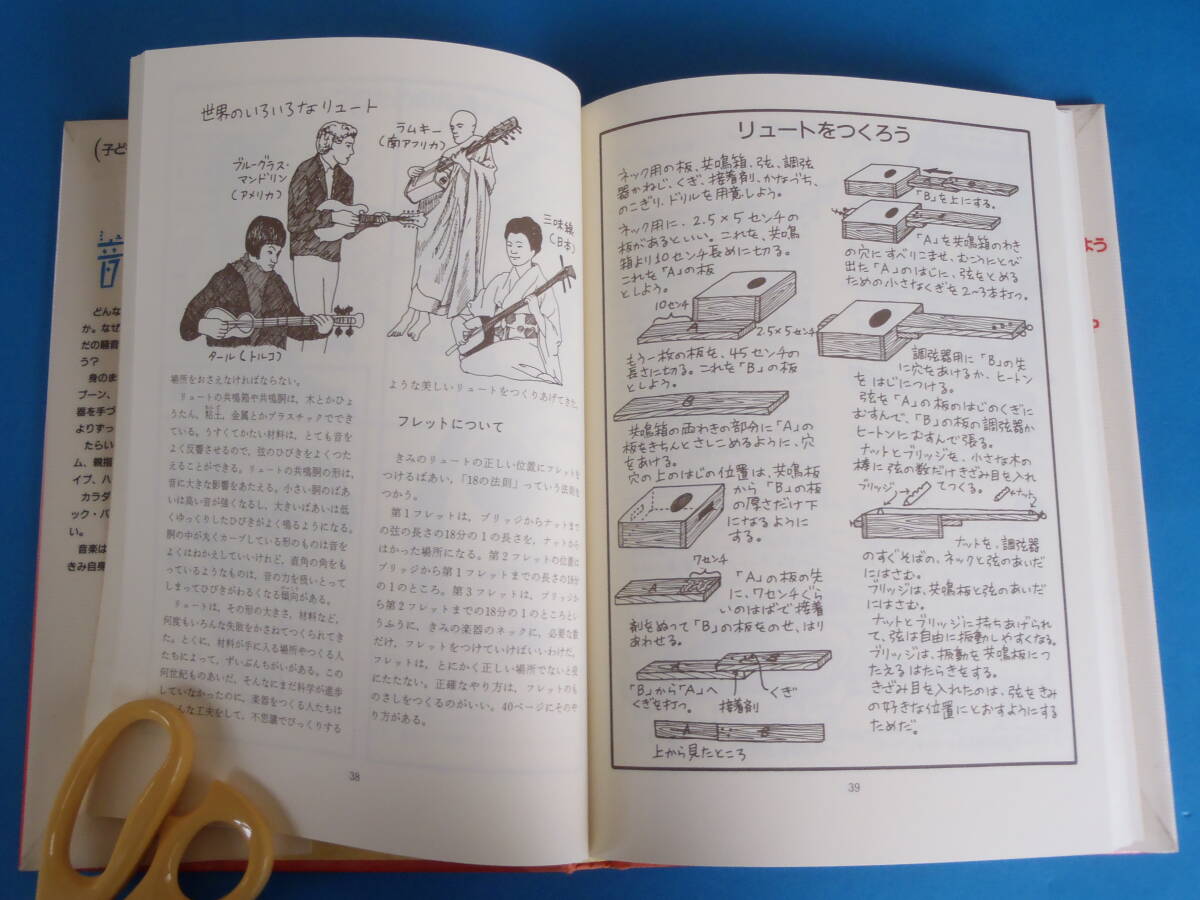 (子ど
音
どんな
か。なぜ
だの騒音
う？
身のま
プーン、
器を手づ
よりずっ
たらい
ム、親指
イブ、ハ
カラダ
ック・パ
い。
音楽は
きみ自身
世界のいろいろなリュート
ブルーグラス・
マンドリン
(アメリカ)
ラムキー
(南アフリカ)
三味線
(日本)
タール(トルコ)
場所をおさえなければならない。
リュートの共鳴箱や共鳴胴は、木とかひょ
うたん、粘土、金属とかプラスチックででき
ている。うすくてかたい材料は、とても音を
よく反響させるので、弦のひびきをよくつた
えることができる。リュートの共鳴胴の形は、
音に大きな影響をあたえる。小さい胴のばあ
いは高い音が強くなるし、大きいばあいは低
くゆっくりしたひびきがよく鳴るようになる。
胴の中が丸くカーブしている形のものは音を
よくはねかえしていいけれど、直角の角をも
っているようなものは、音の力を吸いとって
しまってひびきがわるくなる傾向がある。
リュートは、その形の大きさ、材料など、
何度もいろんな失敗をかさねてつくられてき
た。とくに、材料が手に入る場所やつくる人
たちによって、ずいぶんちがいがある。この
何世紀ものあいだ、そんなにまだ科学が進歩
していなかったのに、楽器をつくる人たちは
んな工夫をして、不思議でびっくりする
ような美しいリュートをつくりあげてきた。
フレットについて
きみのリュートの正しい位置にフレットを
つけるばあい、「18の法則」っていう法則を
つかう。
第1フレットは、ブリッジからナットまで
の弦の長さの18分の1の長さを、ナットから
はかった場所になる。第2フレットの位置は
ブリッジから第1フレットまでの長さの18分
の1のところ。第3フレットは、ブリッジか
ら第2フレットまでの18分の1のところとい
うふうに、きみの楽器のネックに、必要な数
だけ、フレットをつけていけばいいわけだ。
フレットは、とにかく正しい場所でないと役
にたたない。正確なやり方は、フレットのも
のさしをつくるのがいい。40ページにそのや
り方がある。
38
リュートをつくろう
ネック用の板、共鳴箱、弦、調弦
器かねじ、くぎ、接着剤、かなづち、
のこぎり、ドリルを用意しよう。
ネック用に、2.5×5センチの
板があるといい。これを、共鳴
箱より10センチ長めに切る。
これを「A」の板
としよう。
10センチ
A
2.5×5センチ
もう一枚の板を、45センチの
長さに切る。これを「B」の板
としよう。
B
共鳴箱の両わきの部分に「A」の
板をきちんとさしこめるように、穴
をあける。
穴の上のはじの位置は、共鳴板
から「B」の板
の厚さだけ下
になるように
する。
7センチ
A
「A」の板の先
に、7センチぐら
いのはばで接着
剤をぬって「B」の板をのせ、はり
あわせる。
A
B
「B」から「A」へ
くぎを打つ。
接着剤
くぎ
A
B
上から見たところ
「B」を上にする。
「A」を共鳴箱のわき
の穴にすべりこませ、むこうにとび
出た「A」のはじに、弦をとめる
ための小さなくぎを2〜3本打つ。
調弦器用に「B」の先
に穴をあけるか、ヒートン
をはじにつける。
弦を「A」の板のはじのくぎに
むすんで、「B」の板の調弦器か
ヒートンにむすんで張る。
ナットとブリッジを、小さな木の
棒に弦の数だけきざみ目を入れ
てつくる。
ブリッジ
ナット
ナットを、調弦器
のすぐそばの、ネックと弦のあいだ
にはさむ。
ブリッジは、共鳴板と弦のあいだ
にはさむ。
ナットとブリッジに持ちあげられ
て、弦は自由に振動しやすくなる。
ブリッジは、振動を共鳴板につ
たえるはたらきをする。
きざみ目を入れたのは、弦をきみ
の好きな位置にとおすようにする
ためだ。
39
よう